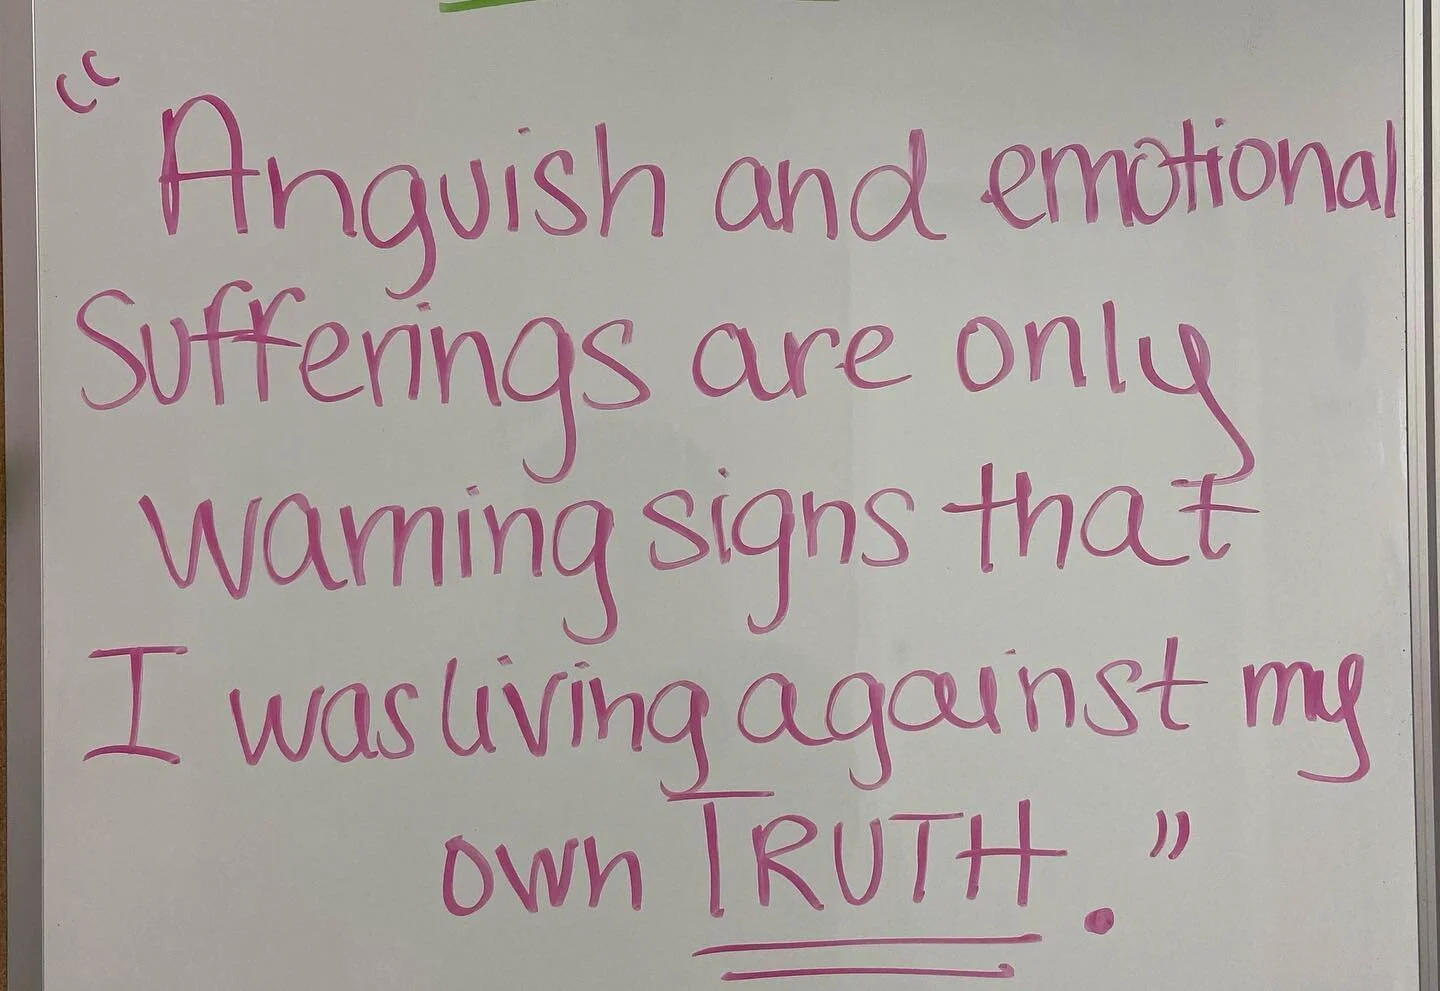 “Anguish and emotional
Sufferings are only
warning signs that
I was living against my
own TRUTH.”